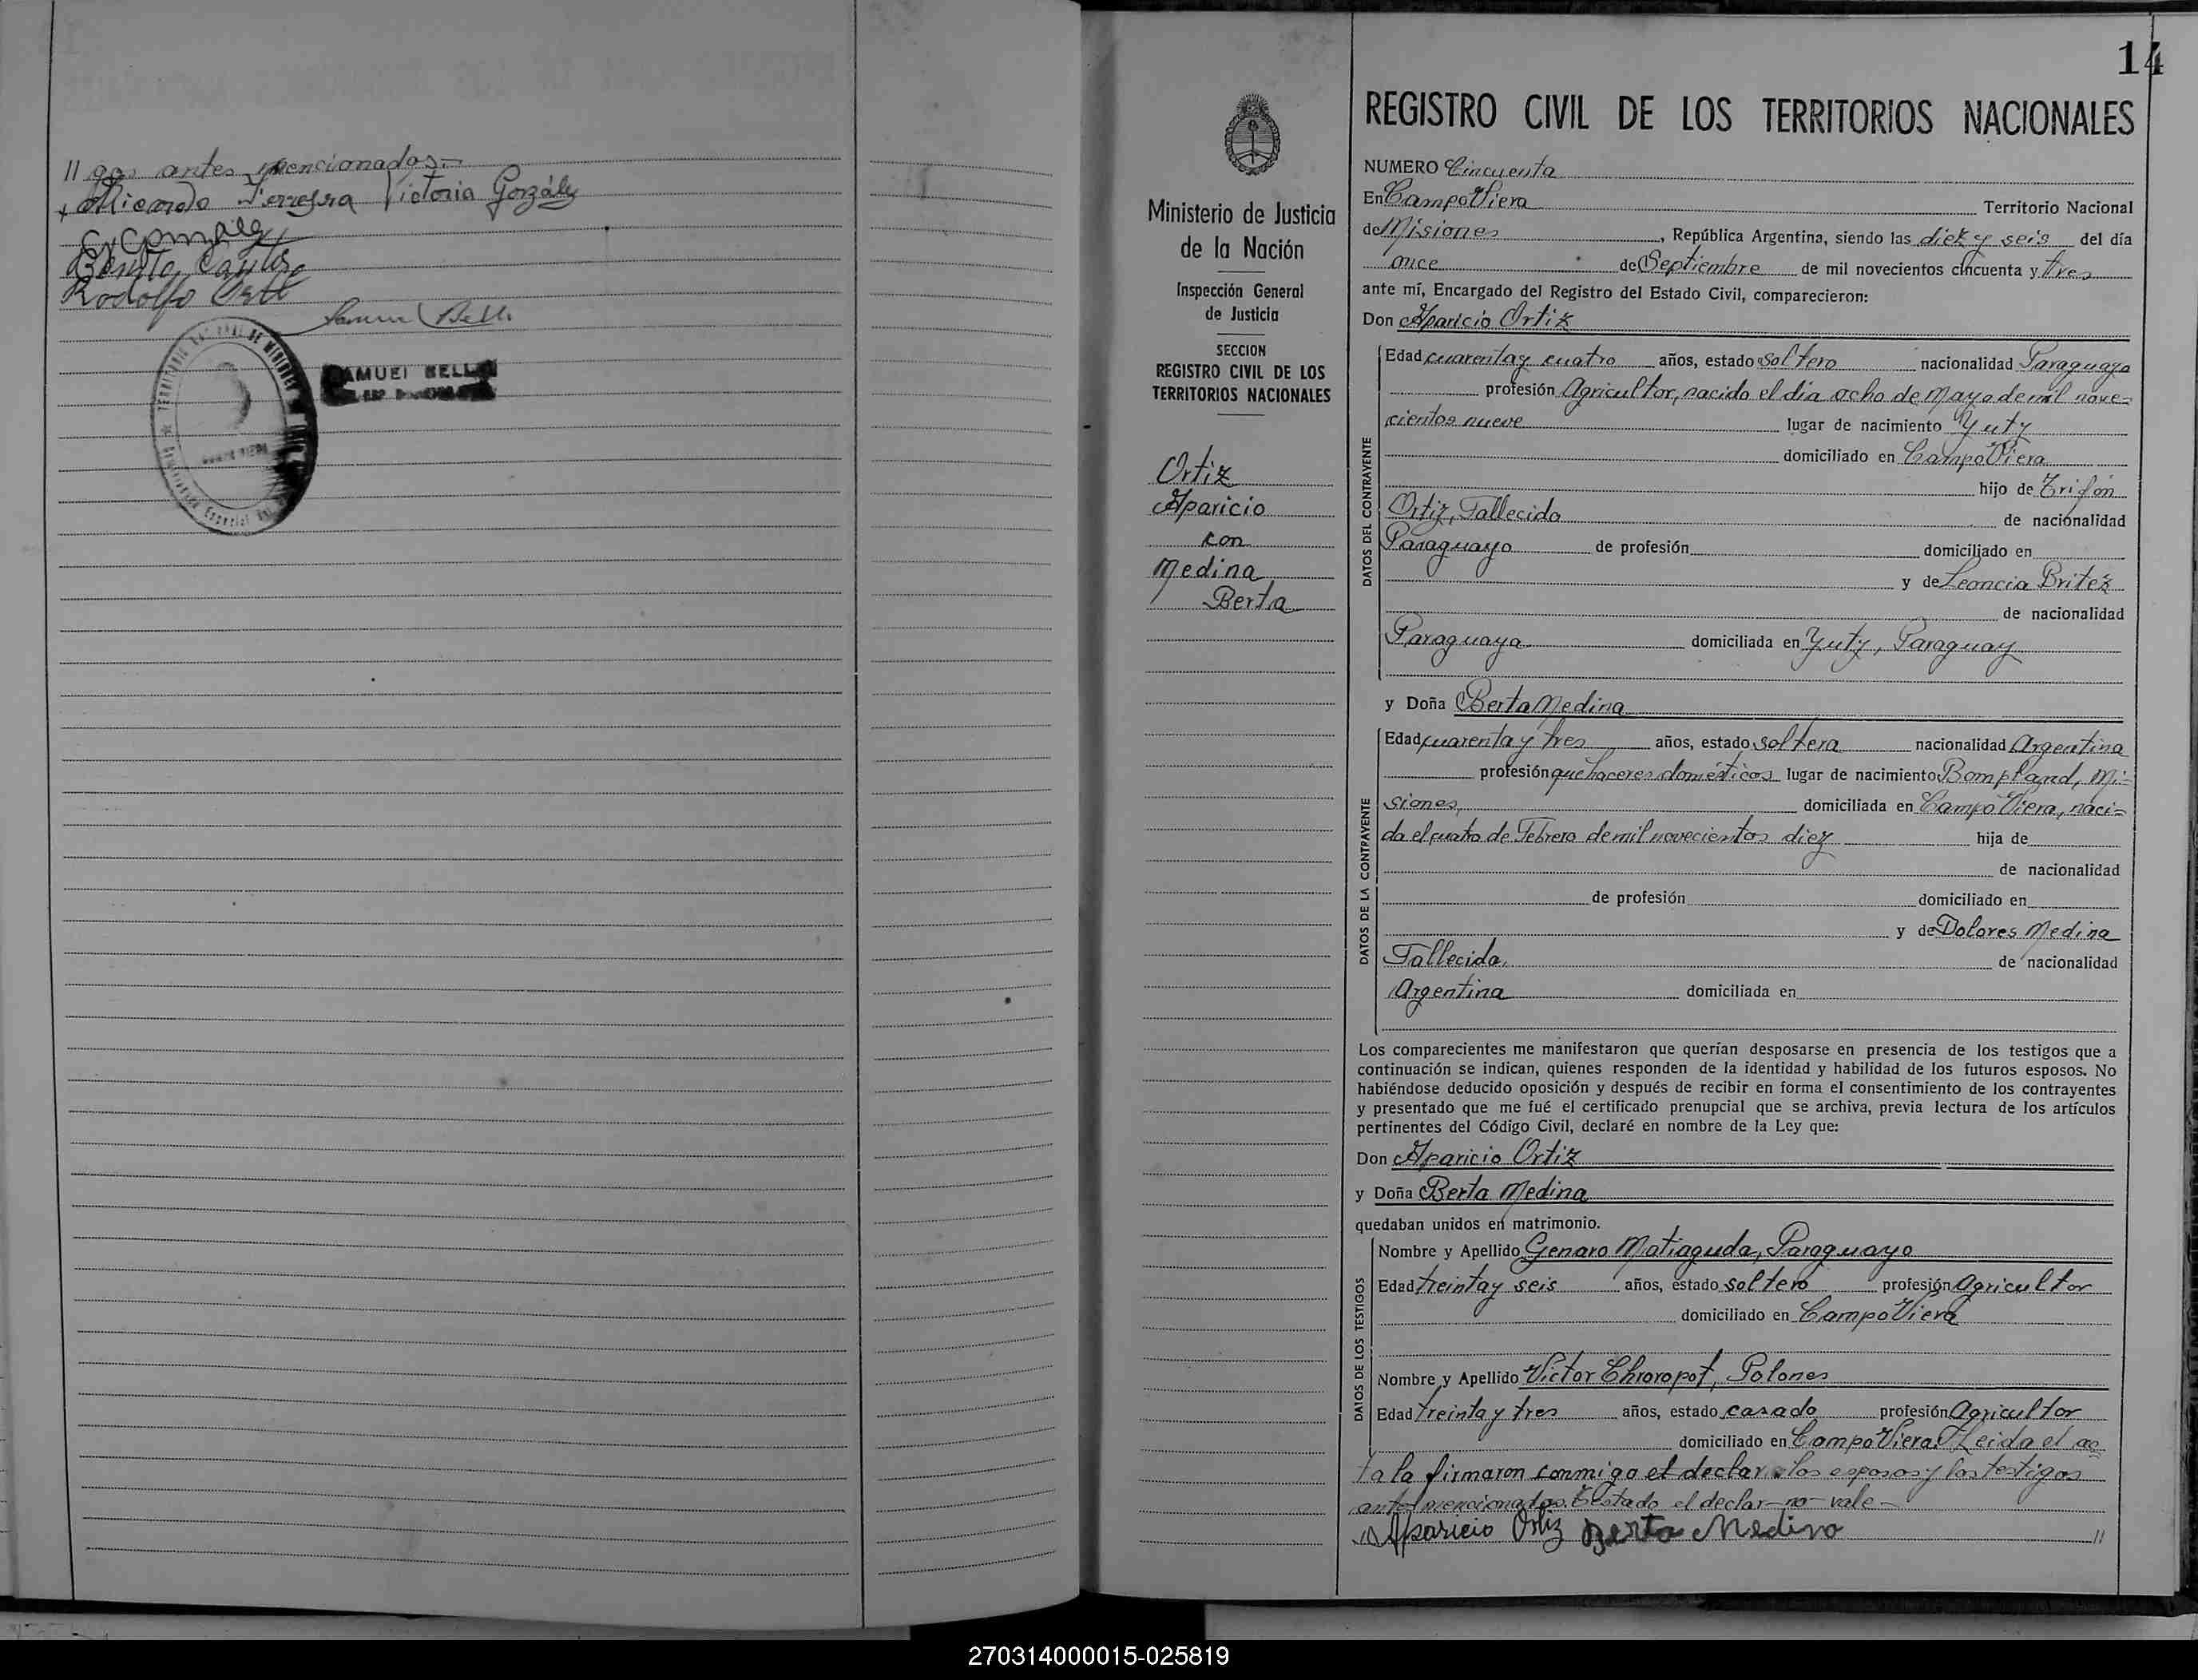 // gos antes mencionados.-
Ferreyra Victoria González
Benito
Rodolfo
SAMUEL BELL
14
REGISTRO CIVIL DE LOS TERRITORIOS NACIONALES
Ministerio de Justicia
de la Nación
Inspección General
de Justicia
SECCION
REGISTRO CIVIL DE LOS
TERRITORIOS NACIONALES
Ortiz
Aparicio
con
Medina
Berta
NUMERO Cincuenta
En Campo Viera Territorio Nacional
de Misiones, República Argentina, siendo las diez y seis del día
once de Septiembre de mil novecientos cincuenta y tres
ante mí, Encargado del Registro del Estado Civil, comparecieron:
Don Aparicio Ortiz
DATOS DEL CONTRAYENTE
Edad cuarenta y cuatro años, estado soltero nacionalidad Paraguayo
profesión Agricultor, nacido el día ocho de Mayo de mil nove=
cientos nueve lugar de nacimiento Yuty
domiciliado en Campo Viera
hijo de Trifón
Ortiz, Fallecido de nacionalidad
Paraguayo de profesión domiciliado en
y de Leoncia Britez
de nacionalidad
Paraguaya domiciliada en Yuty, Paraguay
y Doña Berta Medina
DATOS DE LA CONTRAYENTE
Edad cuarenta y tres años, estado soltera nacionalidad Argentina
profesión quehaceres domésticos lugar de nacimiento Bompland, Mi=
siones, domiciliada en Campo Viera, naci=
da el cuatro de Febrero de mil novecientos diez hija de
de nacionalidad
de profesión domiciliado en
y de Dolores Medina
Fallecida, de nacionalidad
Argentina domiciliada en
Los comparecientes me manifestaron que querían desposarse en presencia de los testigos que a
continuación se indican, quienes responden de la identidad y habilidad de los futuros esposos. No
habiéndose deducido oposición y después de recibir en forma el consentimiento de los contrayentes
y presentado que me fué el certificado prenupcial que se archiva, previa lectura de los artículos
pertinentes del Código Civil, declaré en nombre de la Ley que:
Don Aparicio Ortiz
y Doña Berta Medina
quedaban unidos en matrimonio.
DATOS DE LOS TESTIGOS
Nombre y Apellido Genaro Matiaguda, Paraguayo
Edad treinta y seis años, estado soltero profesión Agricultor
domiciliado en Campo Viera
Nombre y Apellido Victor Chroropot, Polones
Edad treinta y tres años, estado casado profesión Agricultor
domiciliado en Campo Viera. Leida el ac
ta la firmaron conmigo el declar los esposos y los testigos
antes mencionados. Testado el declar-no-vale-
Aparicio Ortiz Berta Medina //
270314000015-025819